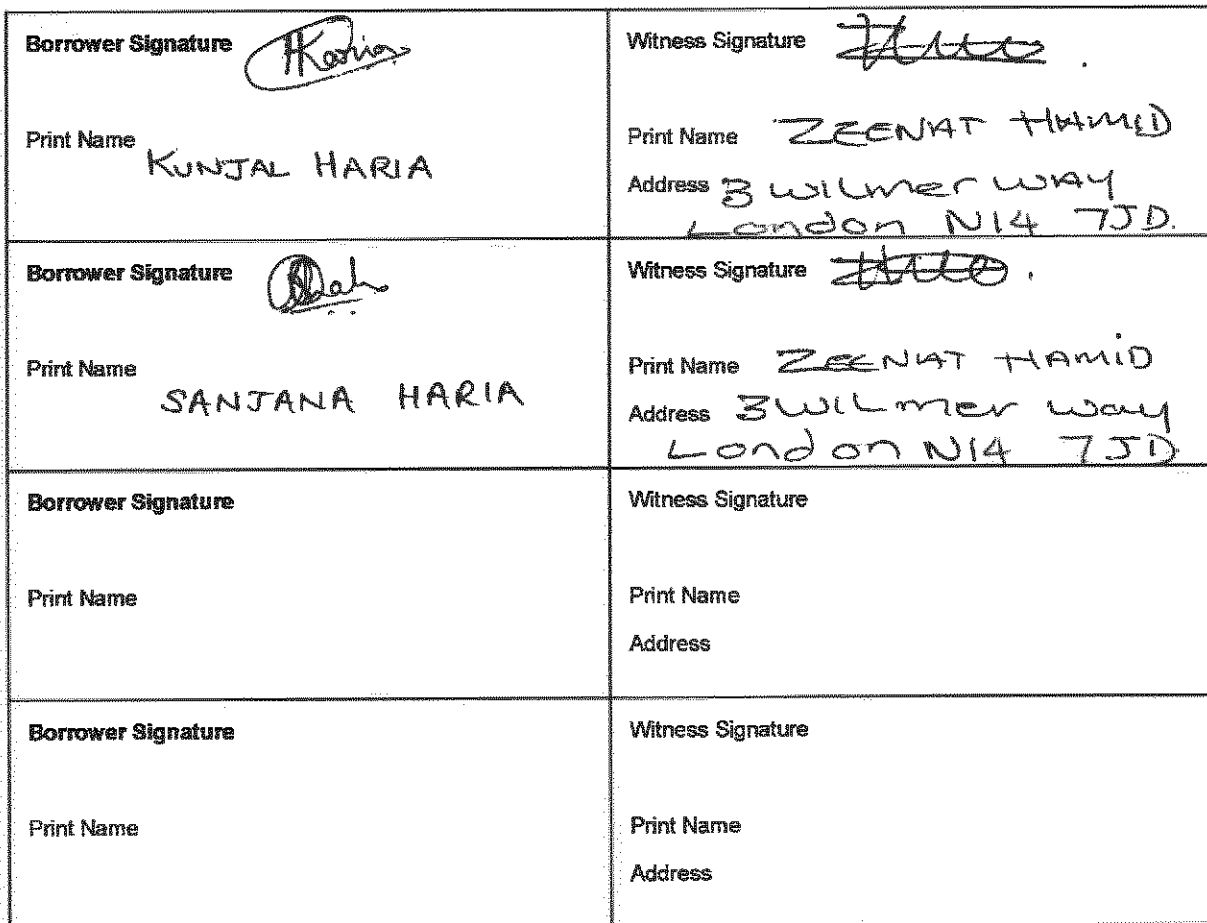 Borrower Signature
Print Name KUNJAL HARIA
Witness Signature
Print Name ZEENAT HAMID
Address 3 WILmer WAY
London N14 7JD.
Borrower Signature
Print Name
SANJANA HARIA
Witness Signature
Print Name ZEENAT HAMID
Address 3 WILmer Way
London N14 7JD
Borrower Signature
Print Name
Witness Signature
Print Name
Address
Borrower Signature
Print Name
Witness Signature
Print Name
Address